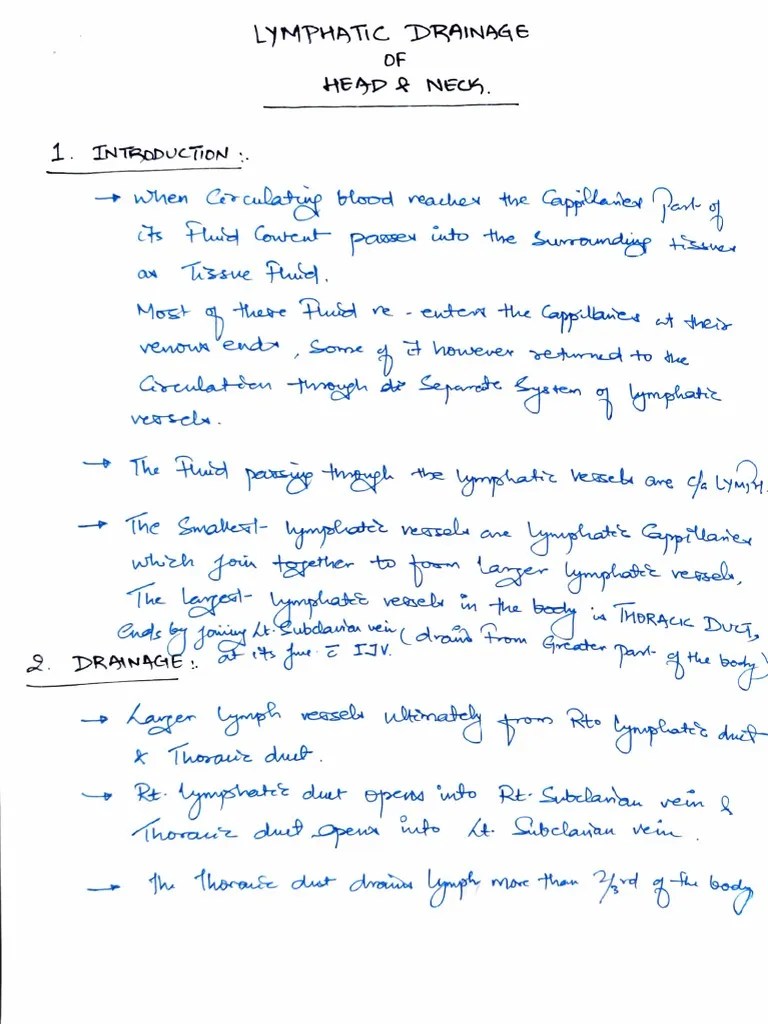 LYMPHATIC DRAINAGE
OF
HEAD & NECK.
1. INTRODUCTION :.
→ When Circulating blood reaches the Cappillaries Part of
its Fluid Content passes into the surrounding tissues
as Tissue Fluid.
Most of these Fluid re-enters the Cappillaries at their
venous ends, Some of it however returned to the
Circulation through Separate System of lymphatic
vessels.
→ The Fluid passing through the lymphatic vessels are c/a LYMPH.
→ The Smallest lymphatic vessels are lymphatic Cappillaries
which join together to form Larger lymphatic vessels,
The Largest lymphatic vessels in the body is THORACIC DUCT,
Ends by joining Lt. Subclavian vein (drains From Greater part of the body)
at its junc. c̄ IJV.
2. DRAINAGE :.
→ Larger lymph vessels ultimately from Rt lymphatic duct
& Thoracic duct.
→ Rt. lymphatic duct opens into Rt. Subclavian vein &
Thoracic duct opens into Lt. Subclavian vein.
→ The Thoracic duct drains lymph more than 2/3rd of the body